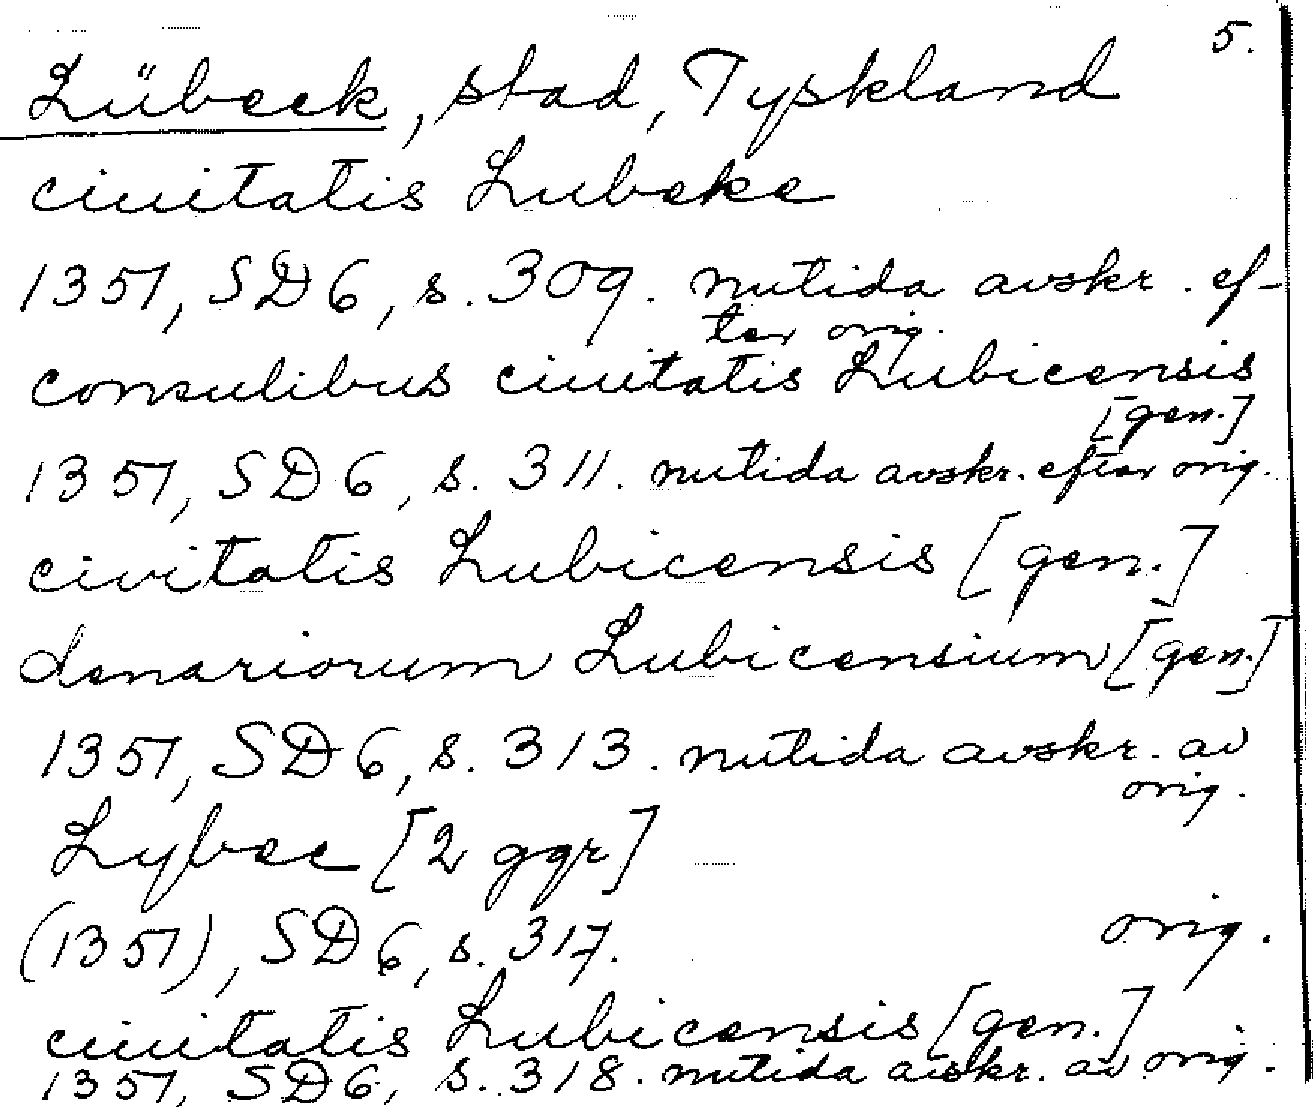 5.
Lübeck, stad, Tyskland
ciuitatis Lubeke
1351, SD 6, s. 309. nutida avskr. ef-
ter orig.
consulibus ciuitatis Lubicensis
[gen.]
1351, SD 6, s. 311. nutida avskr. efter orig.
civitatis Lubicensis [gen.]
denariorum Lubicensium [gen.]
1351, SD 6, s. 313. nutida avskr. av
orig.
Lybec [2 ggr]
(1351), SD 6, s. 317. orig.
ciuitatis Lubicensis [gen.]
1351, SD 6, s. 318. nutida avskr. av orig.